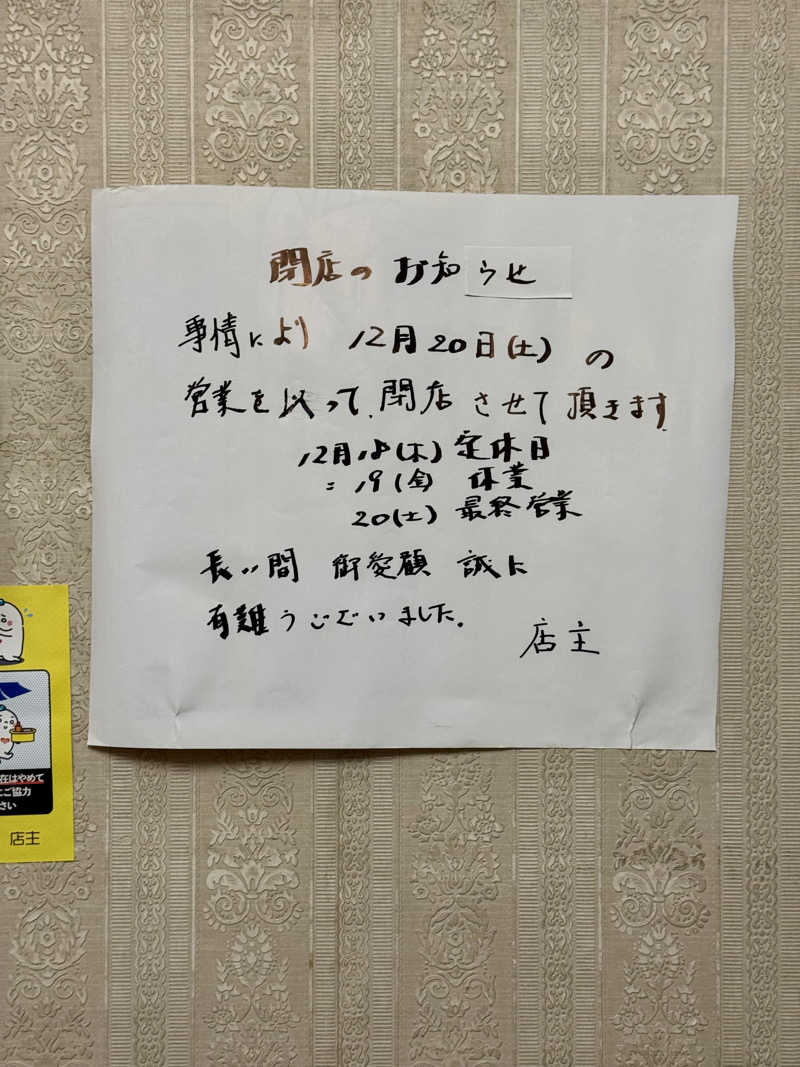 閉店のお知らせ
事情により 12月20日(土)の
営業を以って、閉店させて頂きます
12月18(木) 定休日
〃 19(金) 休業
20(土) 最終営業
長い間 御愛顧 誠に
有難うございました。
店主
在はやめて
ご協力
さい
店主